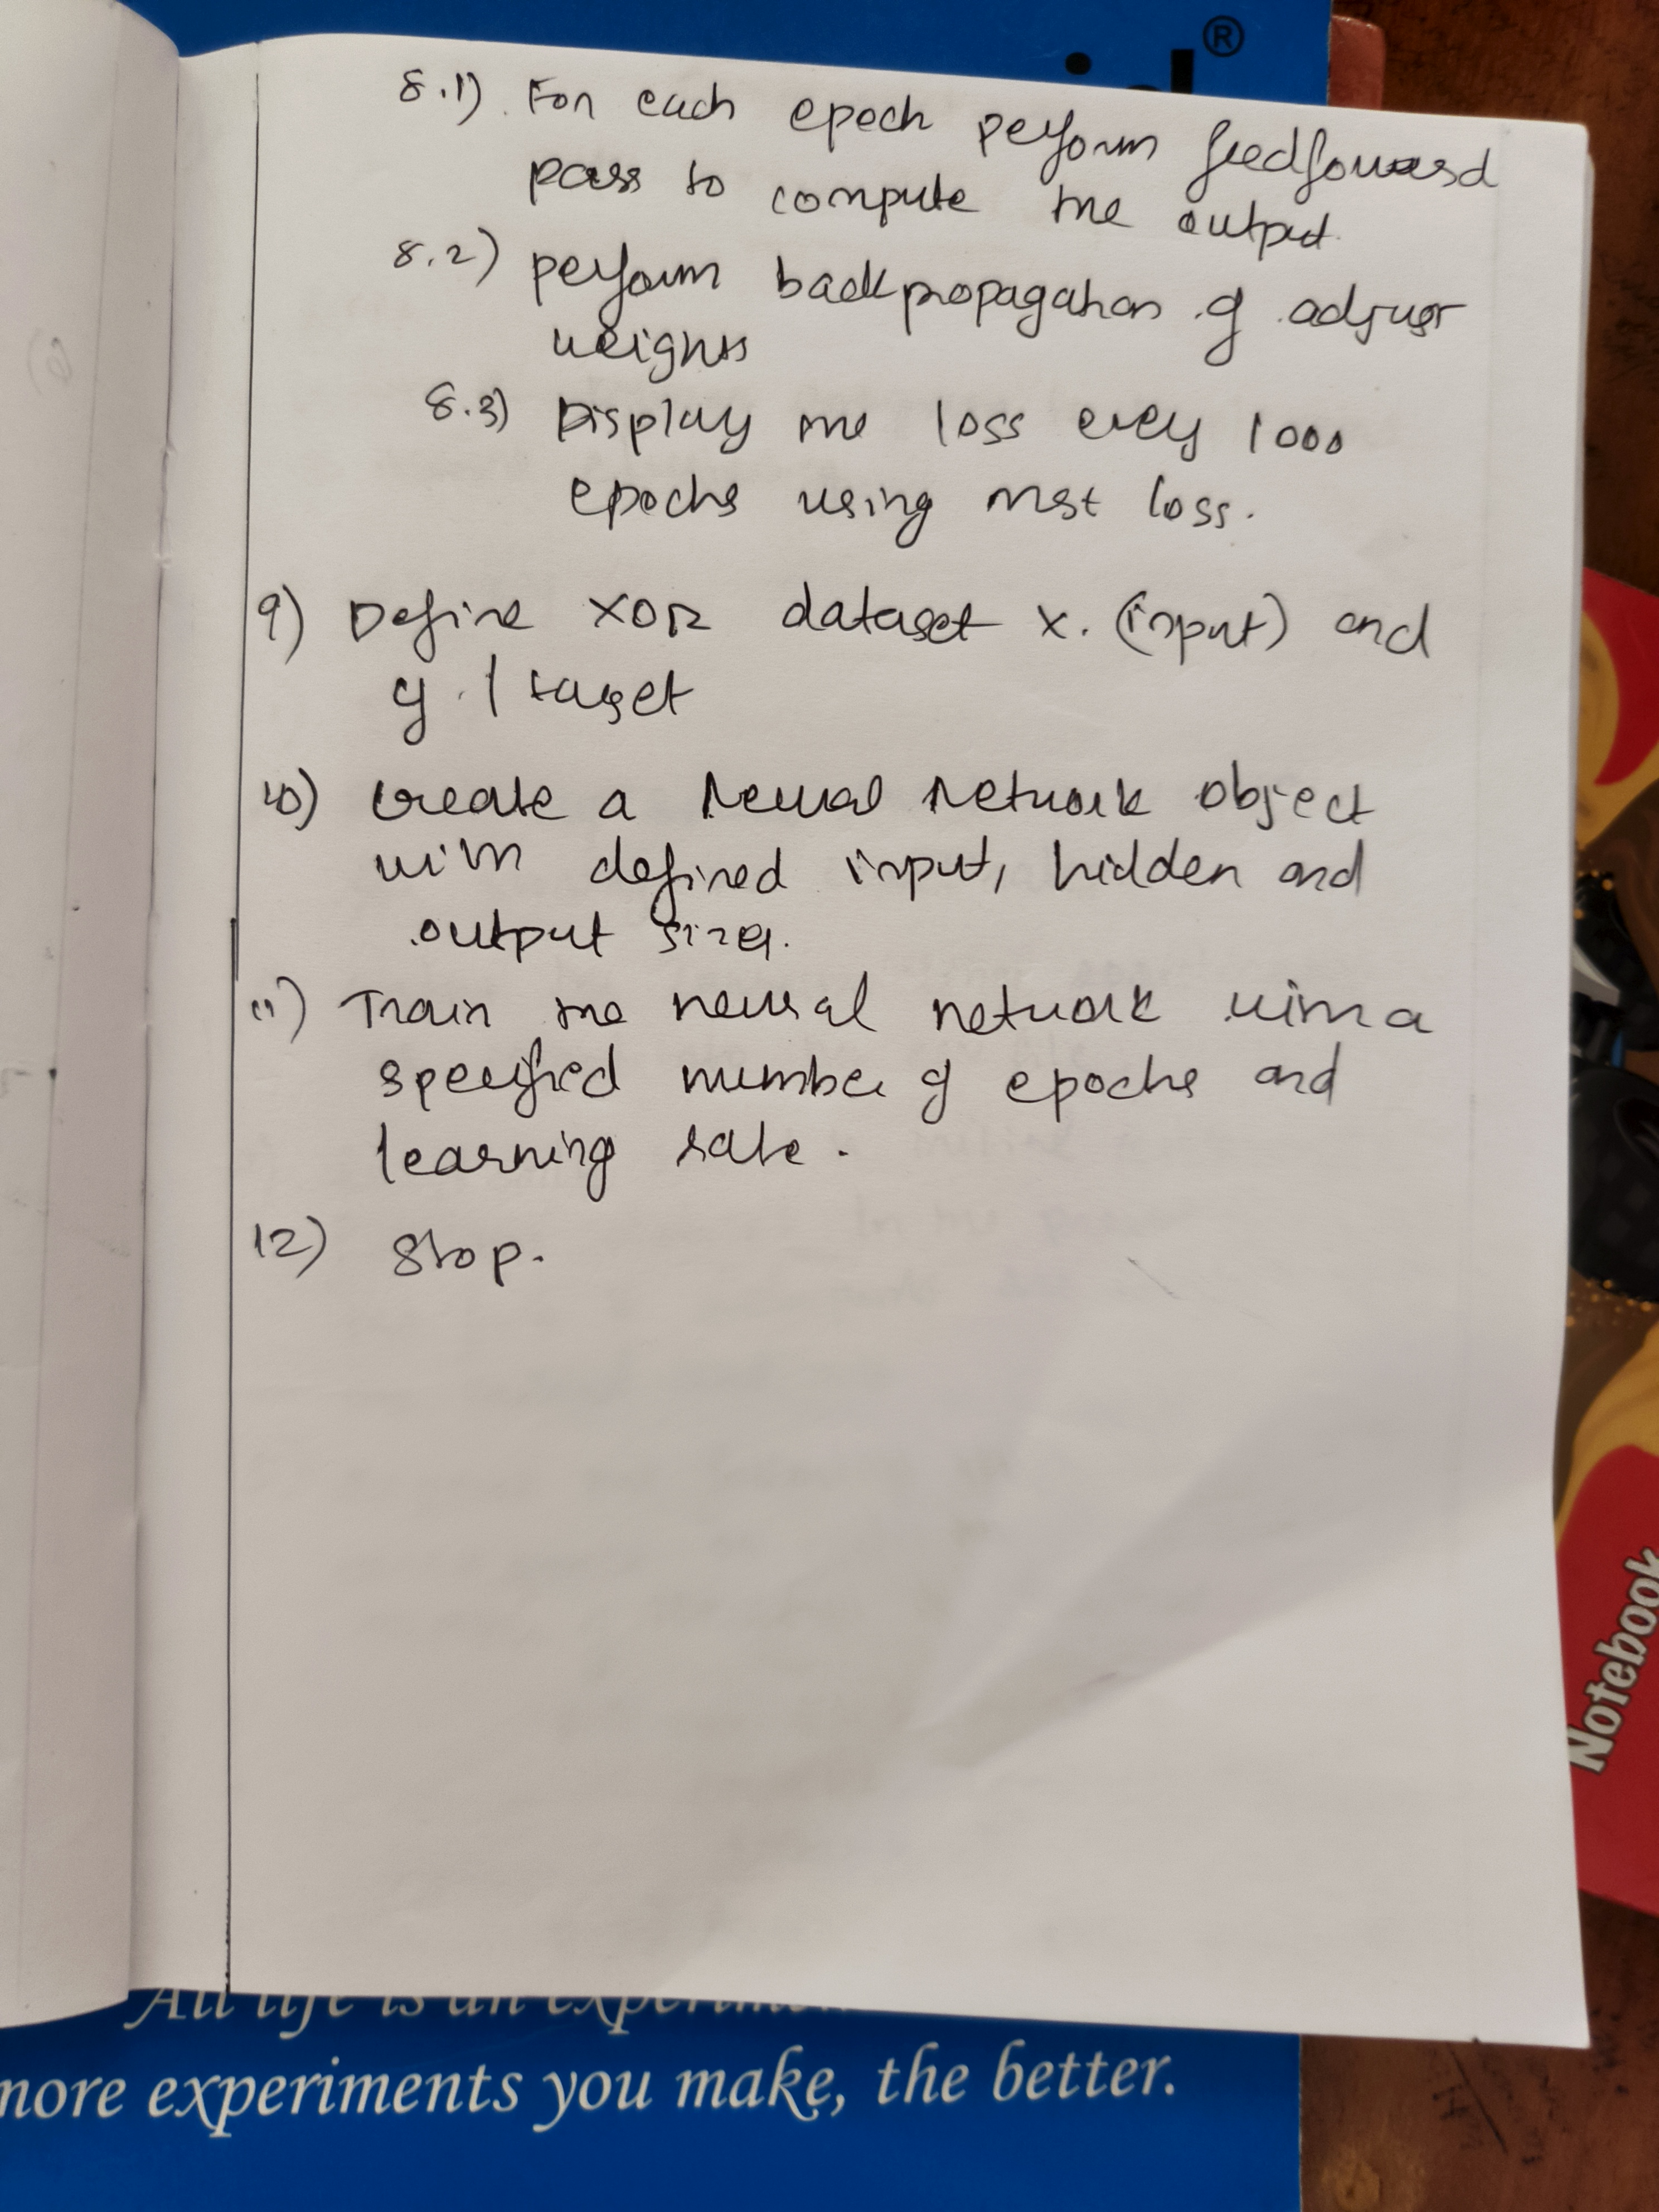 ®
8.1) For each epoch perform feedforward
pass to compute the output.
8.2) perform backpropagation & adjust
weights
8.3) Display the loss every 1000
epochs using mse loss.
9) Define XOR dataset x. (input) and
y. | target
10) create a Neural Network object
with defined input, hidden and
output size.
11) Train the neural network with a
specified number of epochs and
learning rate.
12) Stop.
Notebook
All life is an experiment
more experiments you make, the better.